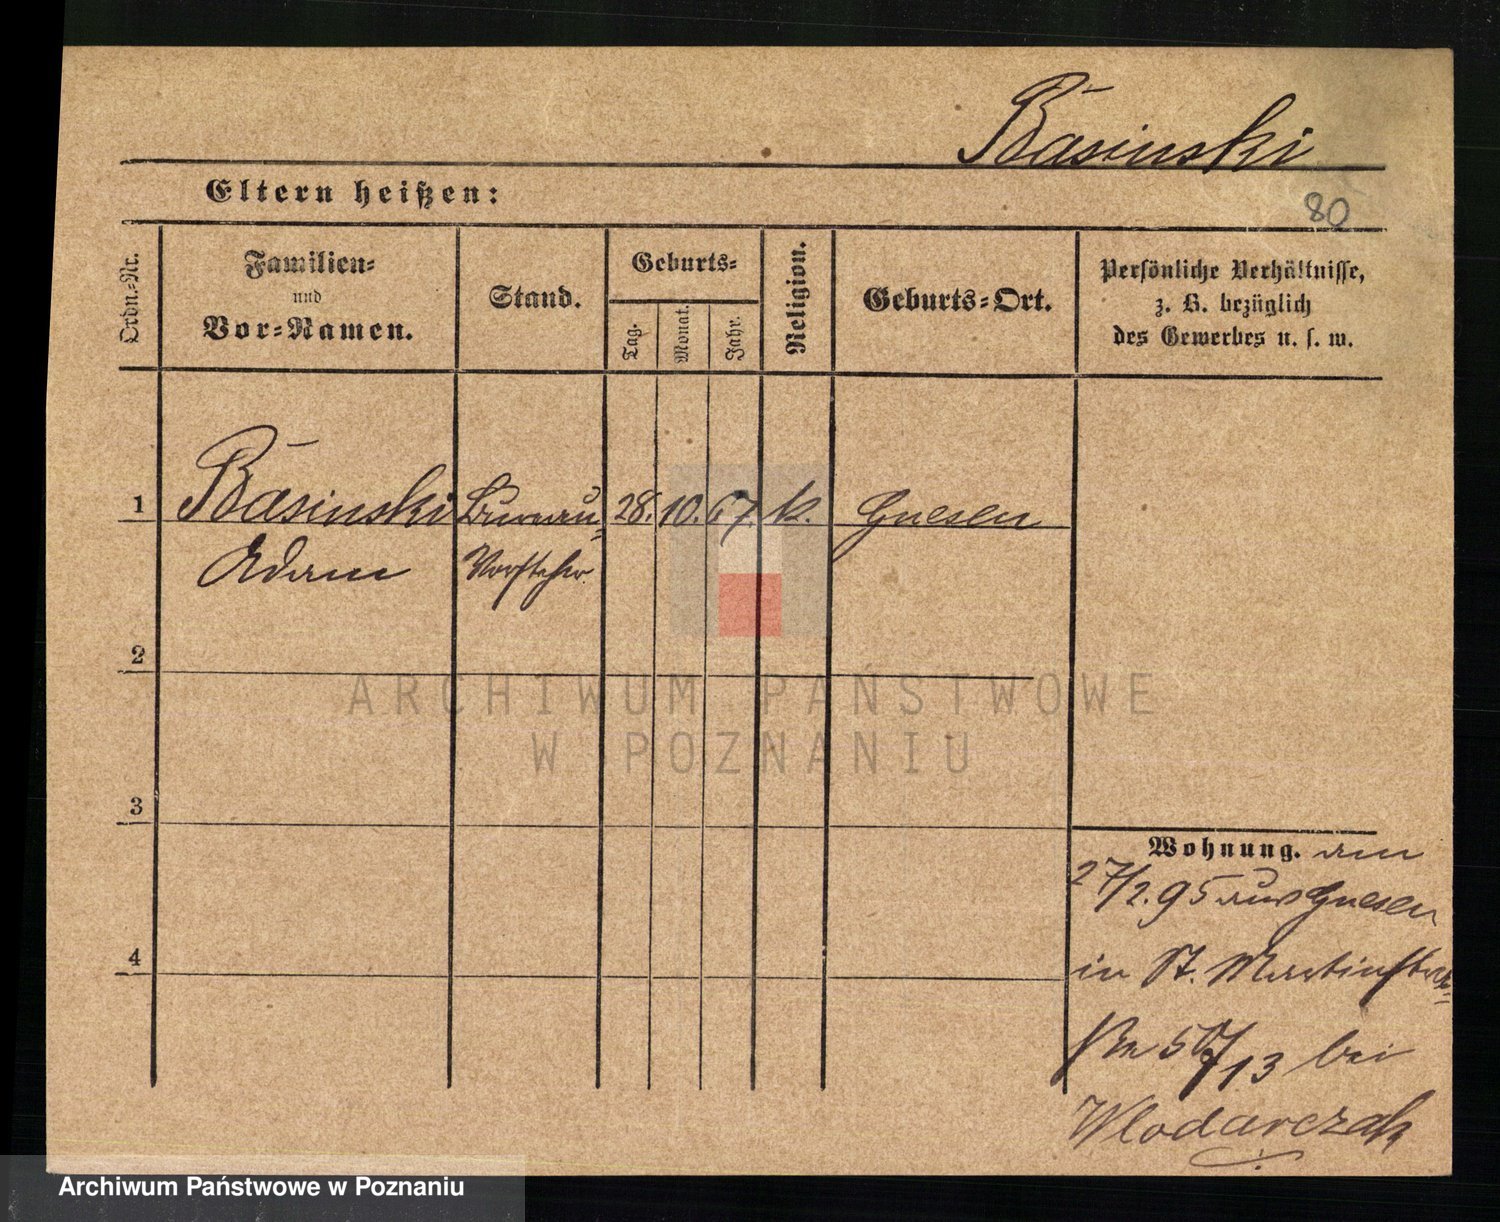 Basinski
Eltern heißen:
80
Ordn.-Nr.
Familien-
und
Vor-Namen.
Stand.
Geburts-
Tag.
Monat.
Jahr.
Religion.
Geburts-Ort.
Persönliche Verhältnisse,
z. B. bezüglich
des Gewerbes u. s. w.
1 Basinski Bureau= 28. 10. 67. k. Gnesen
Adam Vorsteher
2
3
4
Wohnung. am
27/2.95 aus Gnesen
in St. Martinstraße
No 13 bei
Wlodarczak
ARCHIWUM PAŃSTWOWE
W POZNANIU
Archiwum Państwowe w Poznaniu